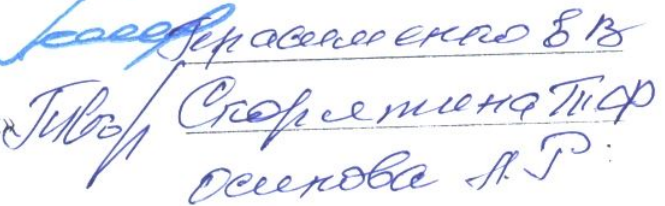 Герасименко В В
Скоряткина Т Ф
Осипова А. Р.